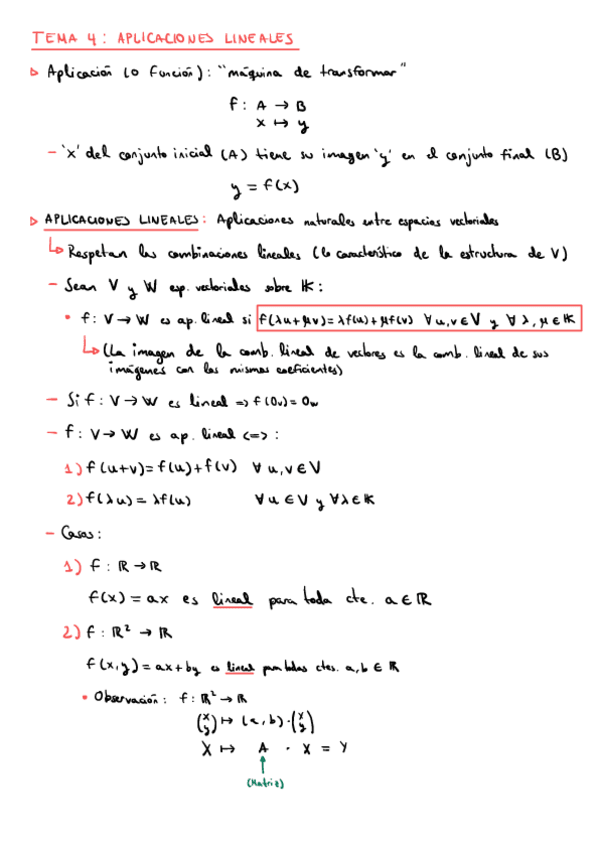 TEMA 4: APLICACIONES LINEALES
▷ Aplicación (o Función): "máquina de transformar"
f: A → B
x ↦ y
- 'x' del conjunto inicial (A) tiene su imagen 'y' en el conjunto final (B)
y = f(x)
▷ APLICACIONES LINEALES: Aplicaciones naturales entre espacios vectoriales
↳ Respetan las combinaciones lineales (lo característico de la estructura de V)
- Sean V y W esp. vectoriales sobre 𝕂:
• f: V → W es ap. lineal si f(λu+μv)=λf(u)+μf(v) ∀ u,v ∈ V y ∀ λ, μ ∈ 𝕂
↳ (La imagen de la comb. lineal de vectores es la comb. lineal de sus
imágenes con los mismos coeficientes)
- Si f: V → W es lineal => f(0v)=0w
- f: V → W es ap. lineal <=> :
1) f(u+v)=f(u)+f(v) ∀ u,v ∈ V
2) f(λu)=λf(u) ∀ u ∈ V y ∀ λ ∈ 𝕂
- Casos:
1) f: ℝ → ℝ
f(x)=ax es lineal para toda cte. a ∈ ℝ
2) f: ℝ² → ℝ
f(x,y)=ax+by es lineal para todas ctes. a,b ∈ ℝ
• Observación: f: ℝ² → ℝ
(x y) ↦ (a,b)·(x y)
X ↦ A · X = Y
↑
(Matriz)